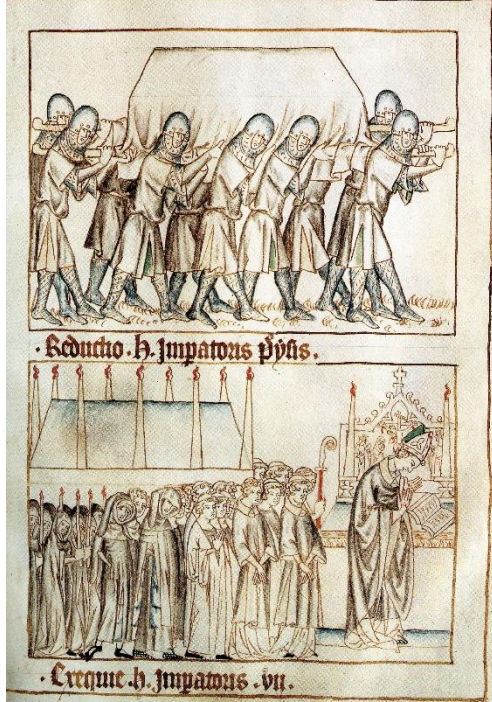 · Reductio · h · Imp̃atoris pÿsis ·
· Exequie · h · Imp̃atoris · vii ·